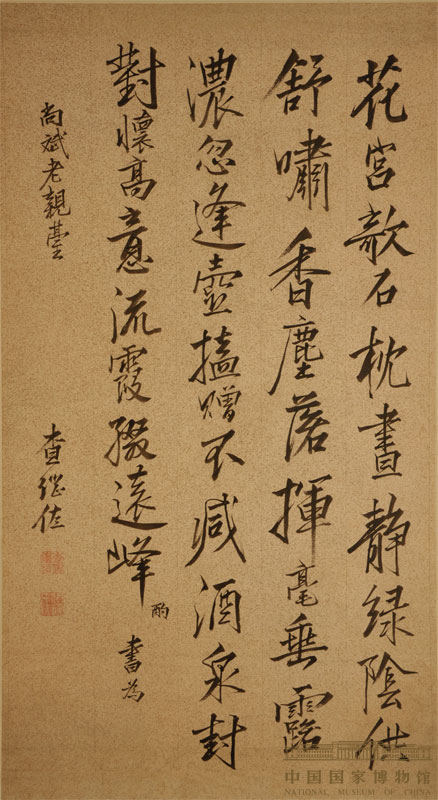 花宮欹石枕晝静緑陰供
舒嘯香塵落揮毫垂露
濃忽逢壺榼贈不減酒泉封
對懷高意流霞綴遠峰酌 書為
尚斌老親臺 查继佐
中国国家博物馆
NATIONAL MUSEUM OF CHINA